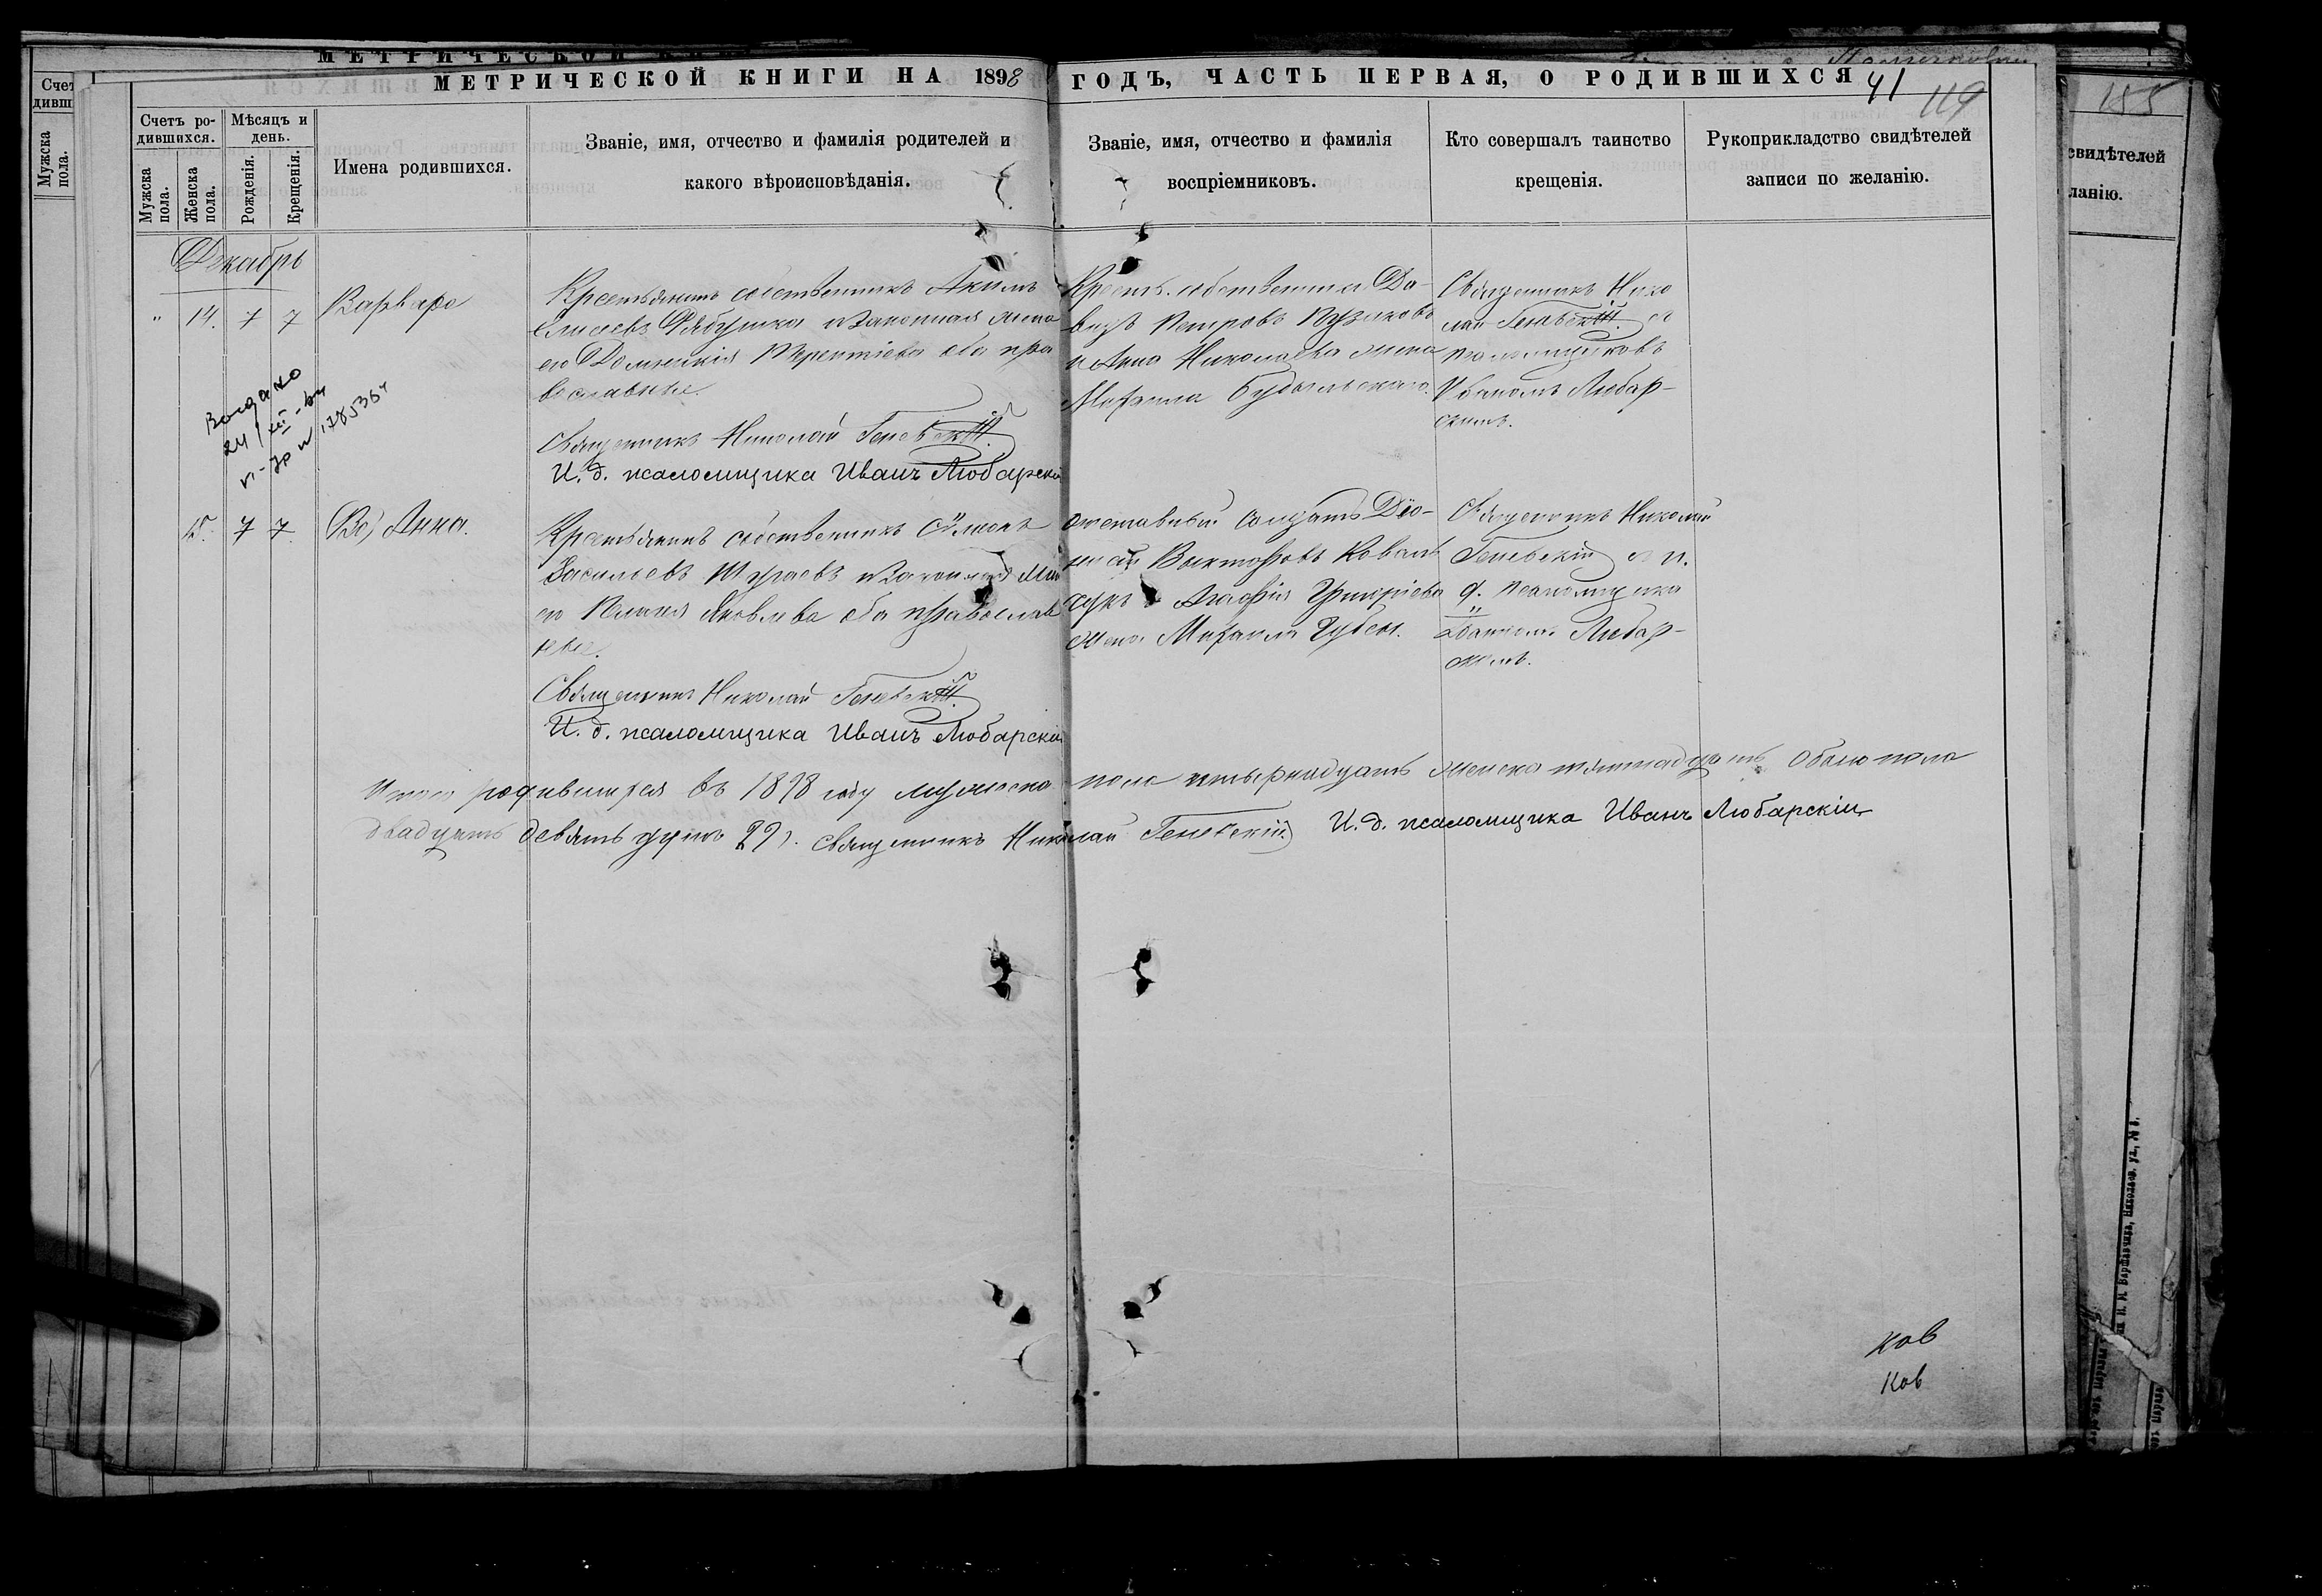 МЕТРИЧЕСКОЙ
МЕТРИЧЕСКОЙ КНИГИ НА 1898 ГОДЪ, ЧАСТЬ ПЕРВАЯ, О РОДИВШИХСЯ
41
119
155
Счетъ ро-
дившихся.
Мѣсяцъ и
день.
Мужска
пола.
Женска
пола.
Рожденія.
Крещенія.
Имена родившихся.
Званіе, имя, отчество и фамилія родителей и
какого вѣроисповѣданія.
Званіе, имя, отчество и фамилія
воспріемниковъ.
Кто совершалъ таинство
крещенія.
Рукоприкладство свидѣтелей
записи по желанію.
Мужска
пола.
свидѣтелей
ланію.
Декабрь
" 14. 7 7
Варвара
Крестьянинъ собственникъ Акимъ
Елисеевъ Рябушка и законная жена
его Домникія Терентіева оба пра
вославные.
Священникъ Николай Геневскій
И. д. псаломщика Иванъ Любарскій
Крест. собственникъ Да-
видъ Петровъ
и Анна Николаева жена
Михаила
Священникъ Нико
лай Геневскій съ
псаломщиковъ
Иваномъ Любар-
скимъ.
24/XII-
15. 7 7
Анна.
Крестьянинъ собственникъ Сѵмеонъ
Васильевъ и законная
его Яковлева оба православ
ные.
Священникъ Николай Геневскій
И. д. псаломщика Иванъ Любарскій
отставный солдатъ Діо-
нисій Викторовъ Коваль
чукъ и Агафія Григоріева
жена Михаила
Священникъ Николай
Геневскій съ и.
д. псаломщика
Иваномъ Любар-
скимъ.
Итого родившихся въ 1898 году мужеска пола четырнадцать женска пятнадцать обоего пола
двадцать девять душъ 29. Священникъ Николай Геневскій И. д. псаломщика Иванъ Любарскій
ков
Ков